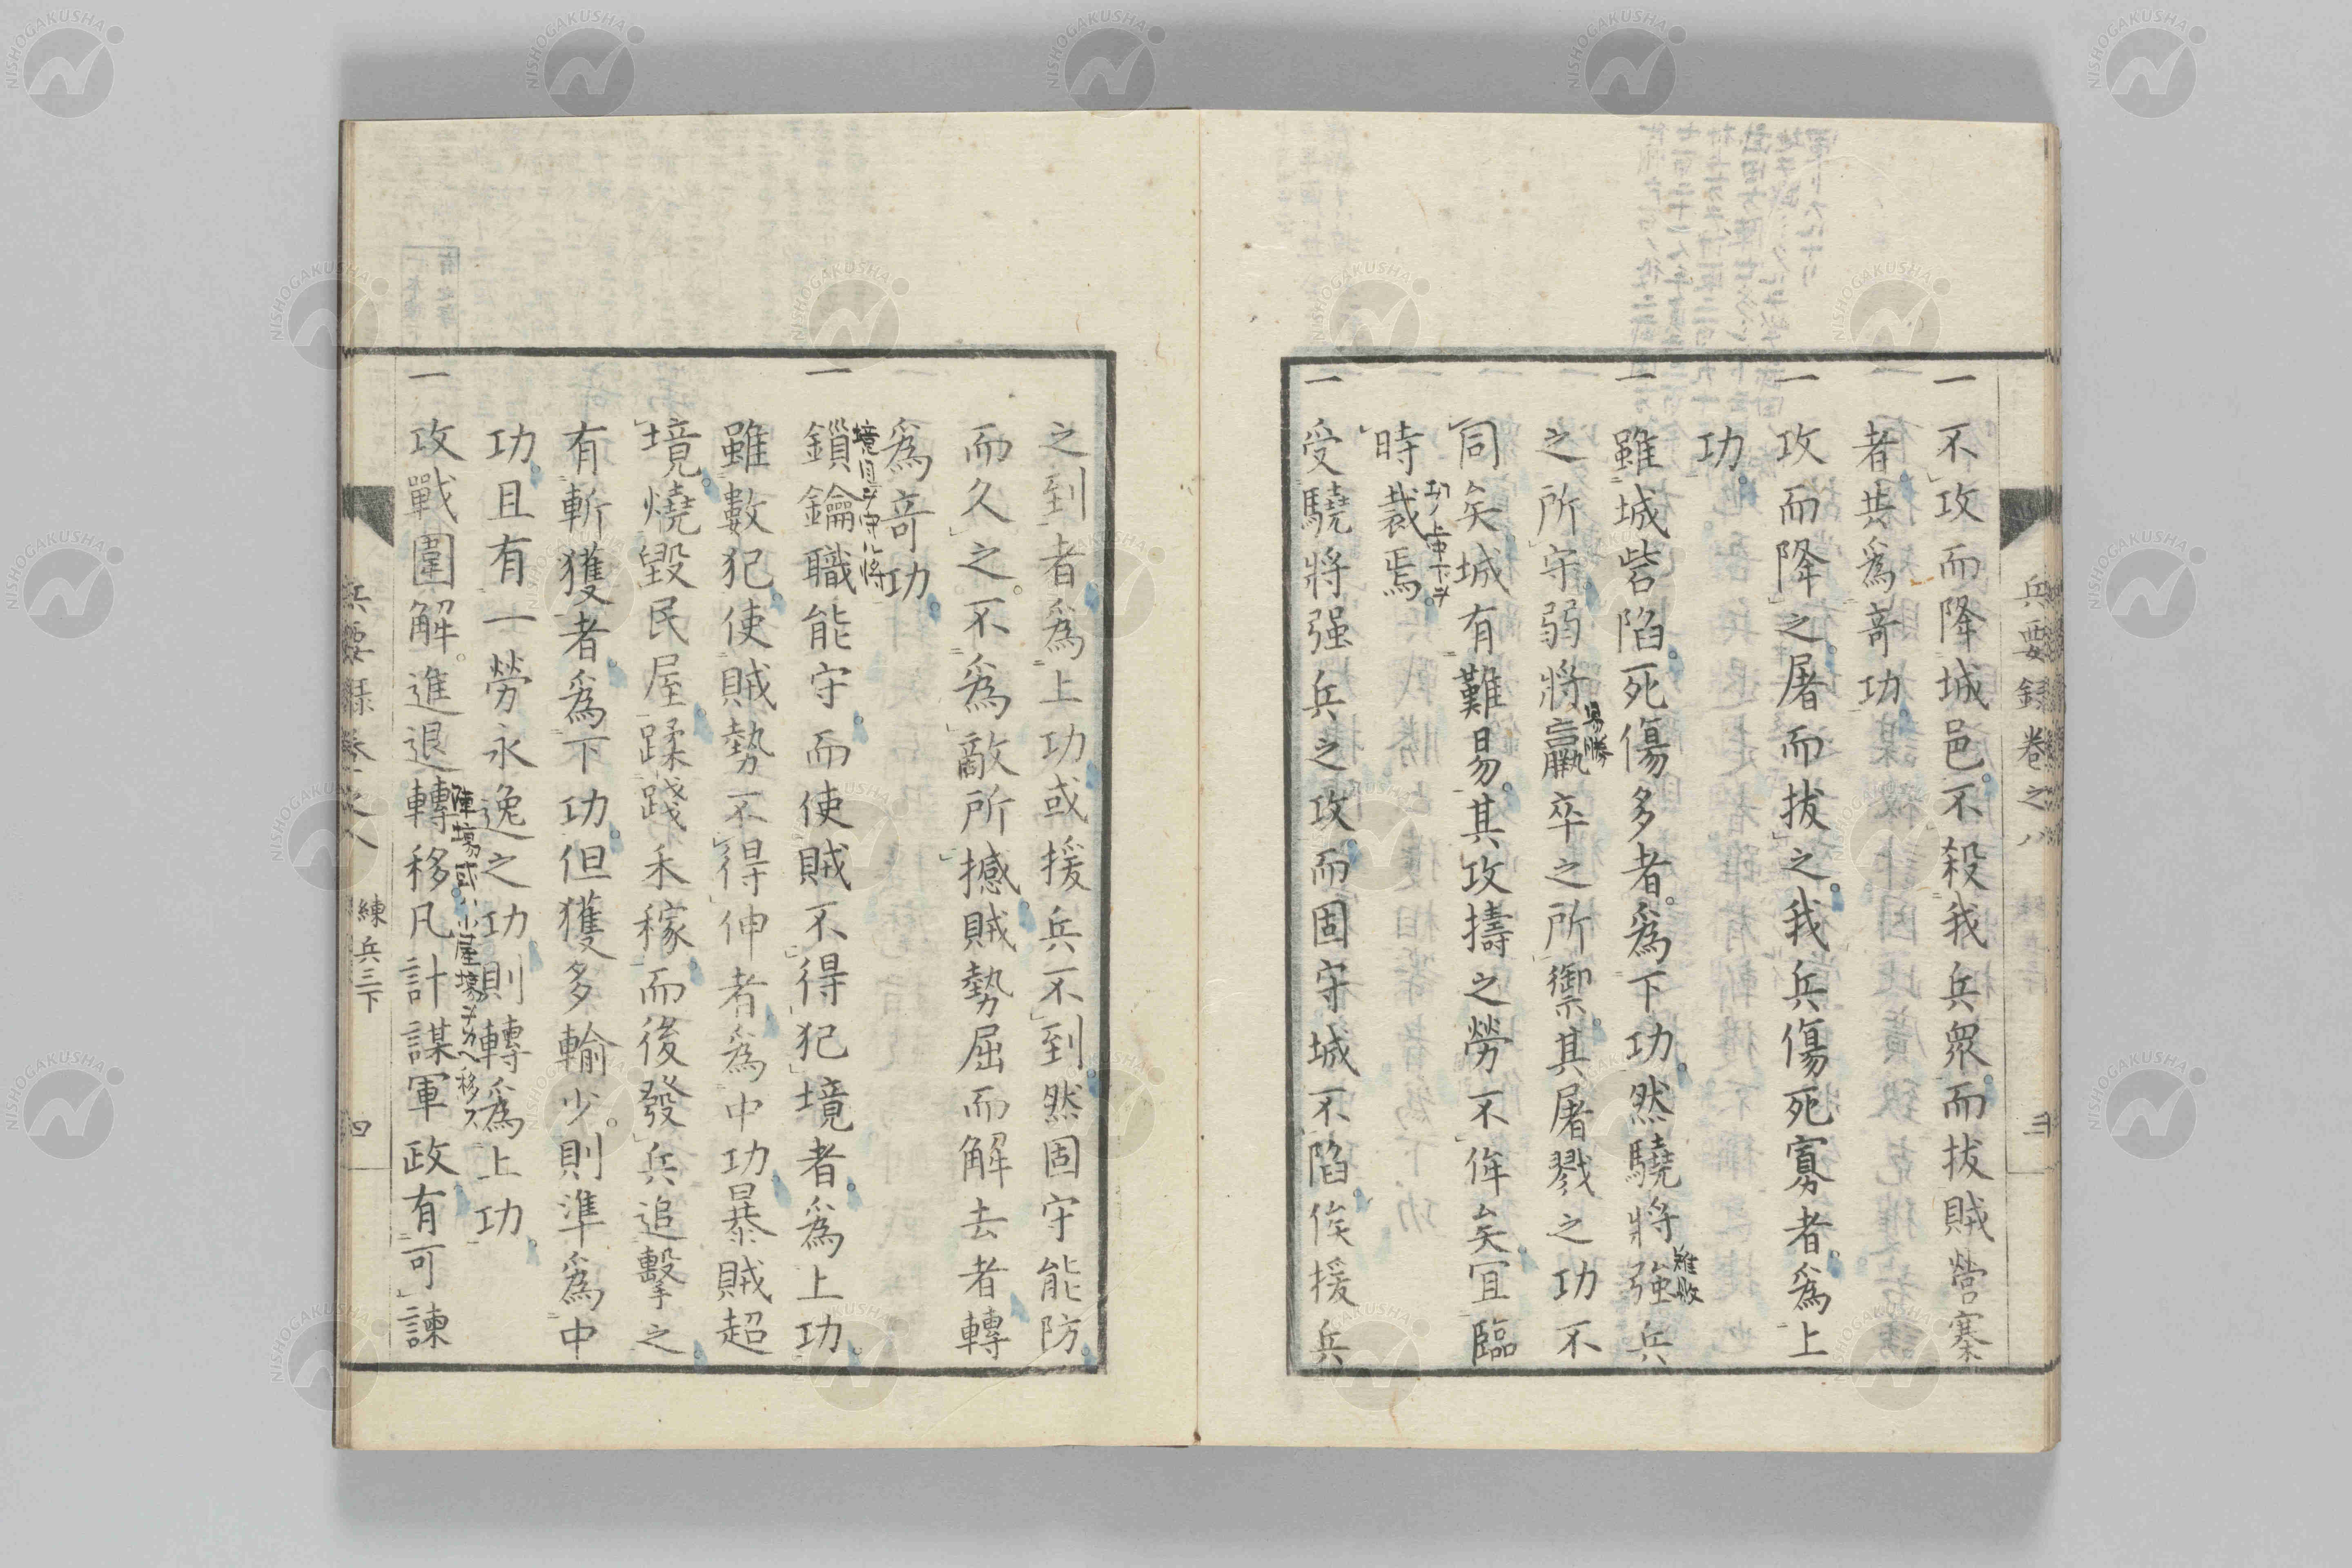 兵要録卷之八 三
一不攻而降城邑不殺我兵衆而拔賊營寨
者共爲奇功
一攻而降之屠而拔之我兵傷死寡者爲上
功
一雖城砦陷死傷多者爲下功然驍將強兵
難敗
之所守弱將羸卒之所禦其屠戮之功不
易勝
同矣城有難易其攻擣之勞不侔矣宜臨
時裁焉
功ノ上中下ヲ
一受驍將强兵之攻而固守城不陷俟援兵
之到者爲上功或援兵不到然固守能防
而久之不爲敵所撼賊勢屈而解去者轉
爲奇功
一鎖鑰職能守而使賊不得犯境者爲上功
境目ヲ守ル將
雖數犯使賊勢不得伸者爲中功暴賊超
境燒毀民屋蹂踐禾稼而後發兵追擊之
有斬獲者爲下功但獲多輸少則準爲中
功且有一勞永逸之功則轉爲上功
一攻戰圍解進退轉移凡計謀軍政有可諫
陣場或ハ小屋場ヲカヘ移ス
兵要録卷之八 練兵三下 四
NISHOGAKUSHA